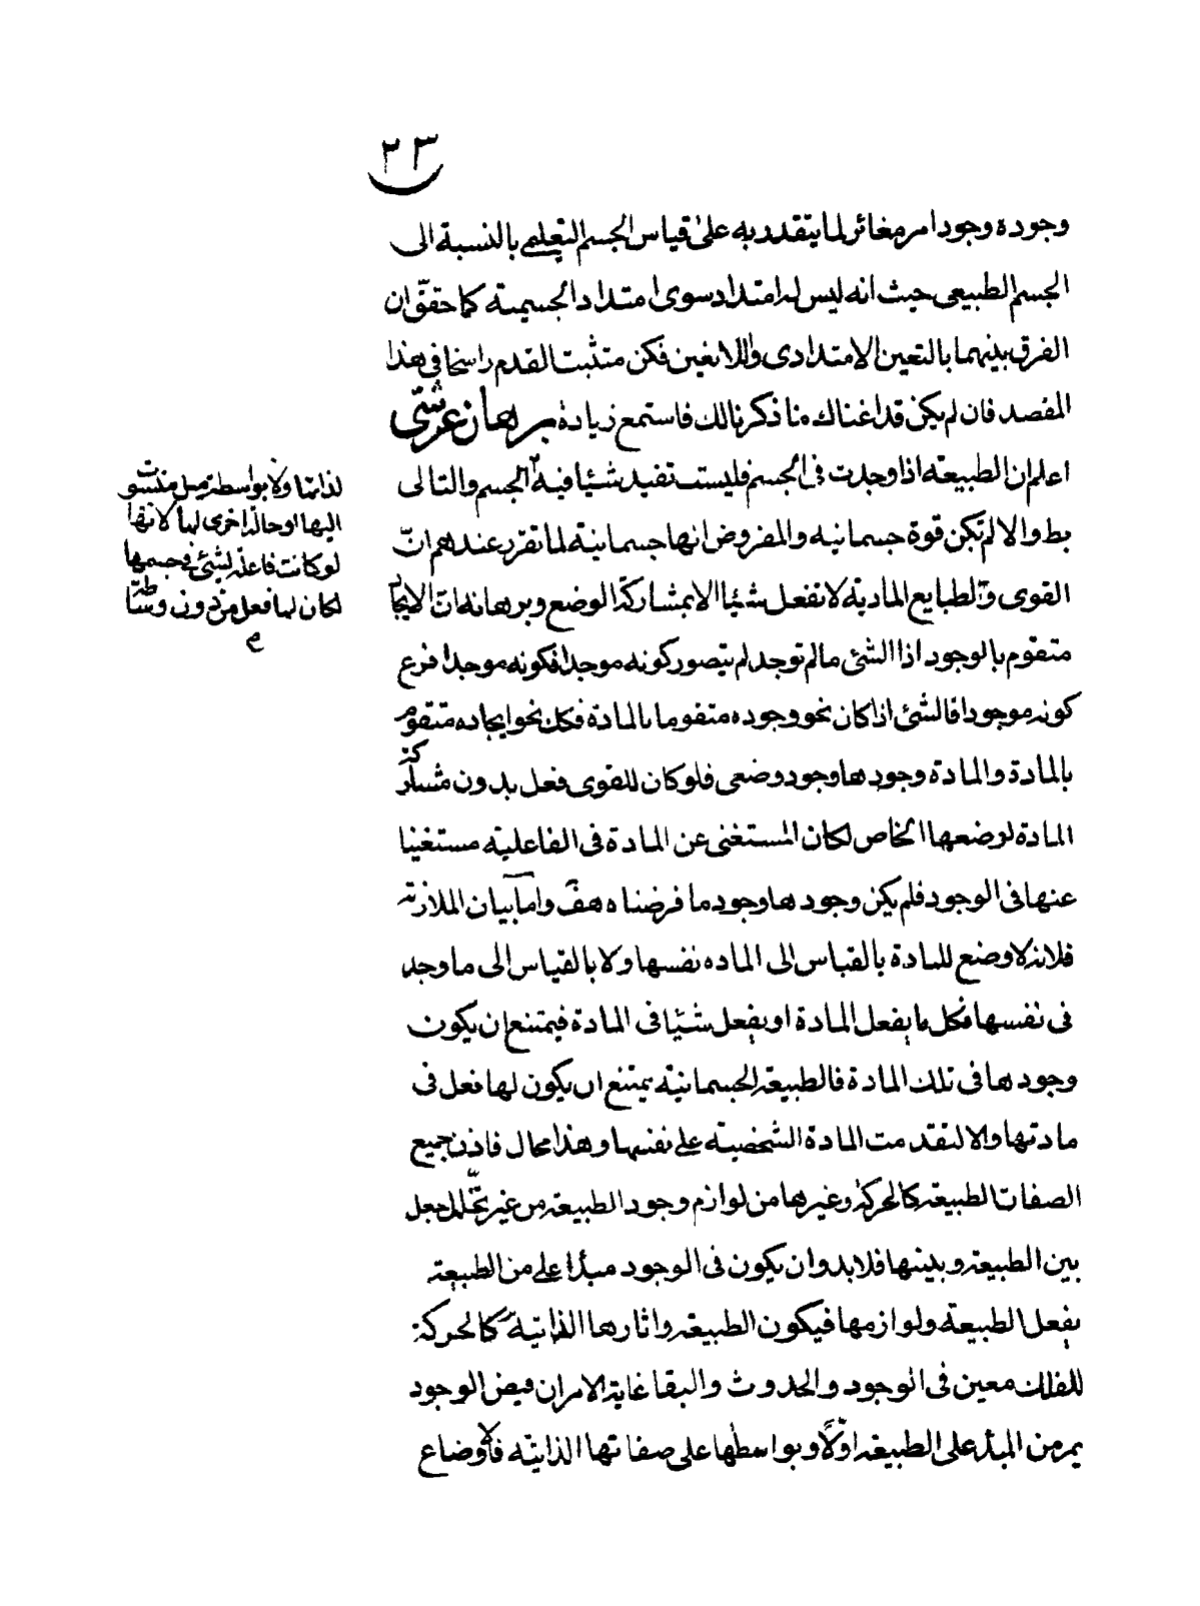 ٢٣
وجوده وجودا مر مغائر لما يتقدد به على قياس الجسم التعليمي بالنسبة الى
الجسم الطبيعى حيث انه ليس له امتداد سوى امتداد الجسمية كما حقق ان
الفرق بينهما بالتعين الامتدادى واللاتعين فكن متثبت القدم راسخا فى هذا
المقصد فان لم يكن قد اغناك ما ذكرنا لك فاستمع زيادة برهان عرشى
اعلم ان الطبيعة اذا وجدت فى الجسم فليست تفيد شيئا فيه الجسم والتالى
بط والا لم تكن قوة جسمانيه والمفروض انها جسمانية لما تقرر عندهم ان
القوى والطبايع المادية لا تفعل شيئا الا بمشاركة الوضع وبرهانه ان الايجاد
متقوم بالوجود اذا الشئ مالم توجد لم يتصور كونه موجدا فكونه موجدا فرع
كونه موجودا فالشئ اذا كان نحو وجوده متقوما بالمادة فكك نحو ايجاده متقوم
بالمادة والمادة وجودها وجود وضعى فلو كان للقوى فعل بدون مشاركة
المادة لوضعها الخاص لكان المستغنى عن المادة فى الفاعلية مستغنيا
عنها فى الوجود فلم يكن وجودها وجود ما فرضناه هف واما بيان الملازمة
فلانه لا وضع للمادة بالقياس الى الماده نفسها ولا بالقياس الى ما وجد
فى نفسها فكل ما يفعل المادة او يفعل شيئا فى المادة فيمتنع ان يكون
وجودها فى تلك المادة فالطبيعة الجسمانية يمتنع ان يكون لها فعل فى
مادتها والا لتقدمت المادة الشخصية على نفسها وهذا محال فاذن جميع
الصفات الطبيعة كالحركة وغيرها من لوازم وجود الطبيعة من غير تخلل جعل
بين الطبيعة وبينها فلا بد وان يكون فى الوجود مبدا على من الطبيعة
يفعل الطبيعة ولوازمها فيكون الطبيعة واثارها الذاتية كالحركة
للفلك معين فى الوجود والحدوث والبقا غاية الامر ان فيض الوجود
يمر من المبدء على الطبيعة اولا وبواسطها على صفاتها الذاتية فالاوضاع
لذاتها ولا بواسطة ميل منتسو
اليها او حالة اخرى لها لانها
لو كانت فاعلة لشئ فى جسمها
لكان لها فعل من دون وساطة
م